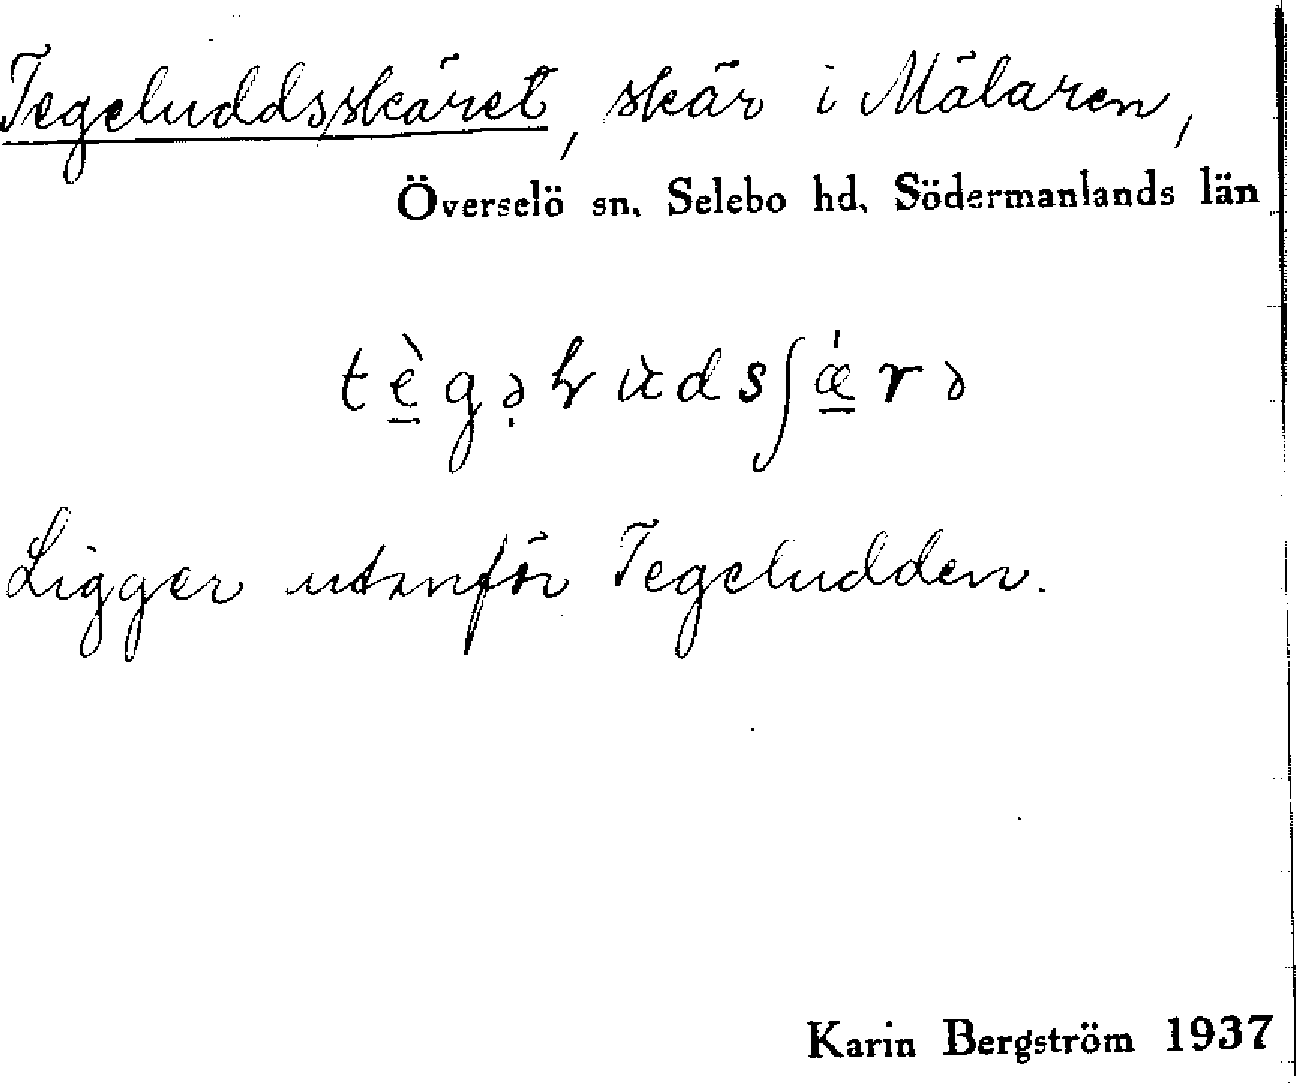 Tegeluddsskäret, skär i Mälaren,
Överselö sn. Selebo hd. Södermanlands län
tè̠gə̣ɬùdsʃǽ̠rə
Ligger utanför Tegeludden.
Karin Bergström 1937